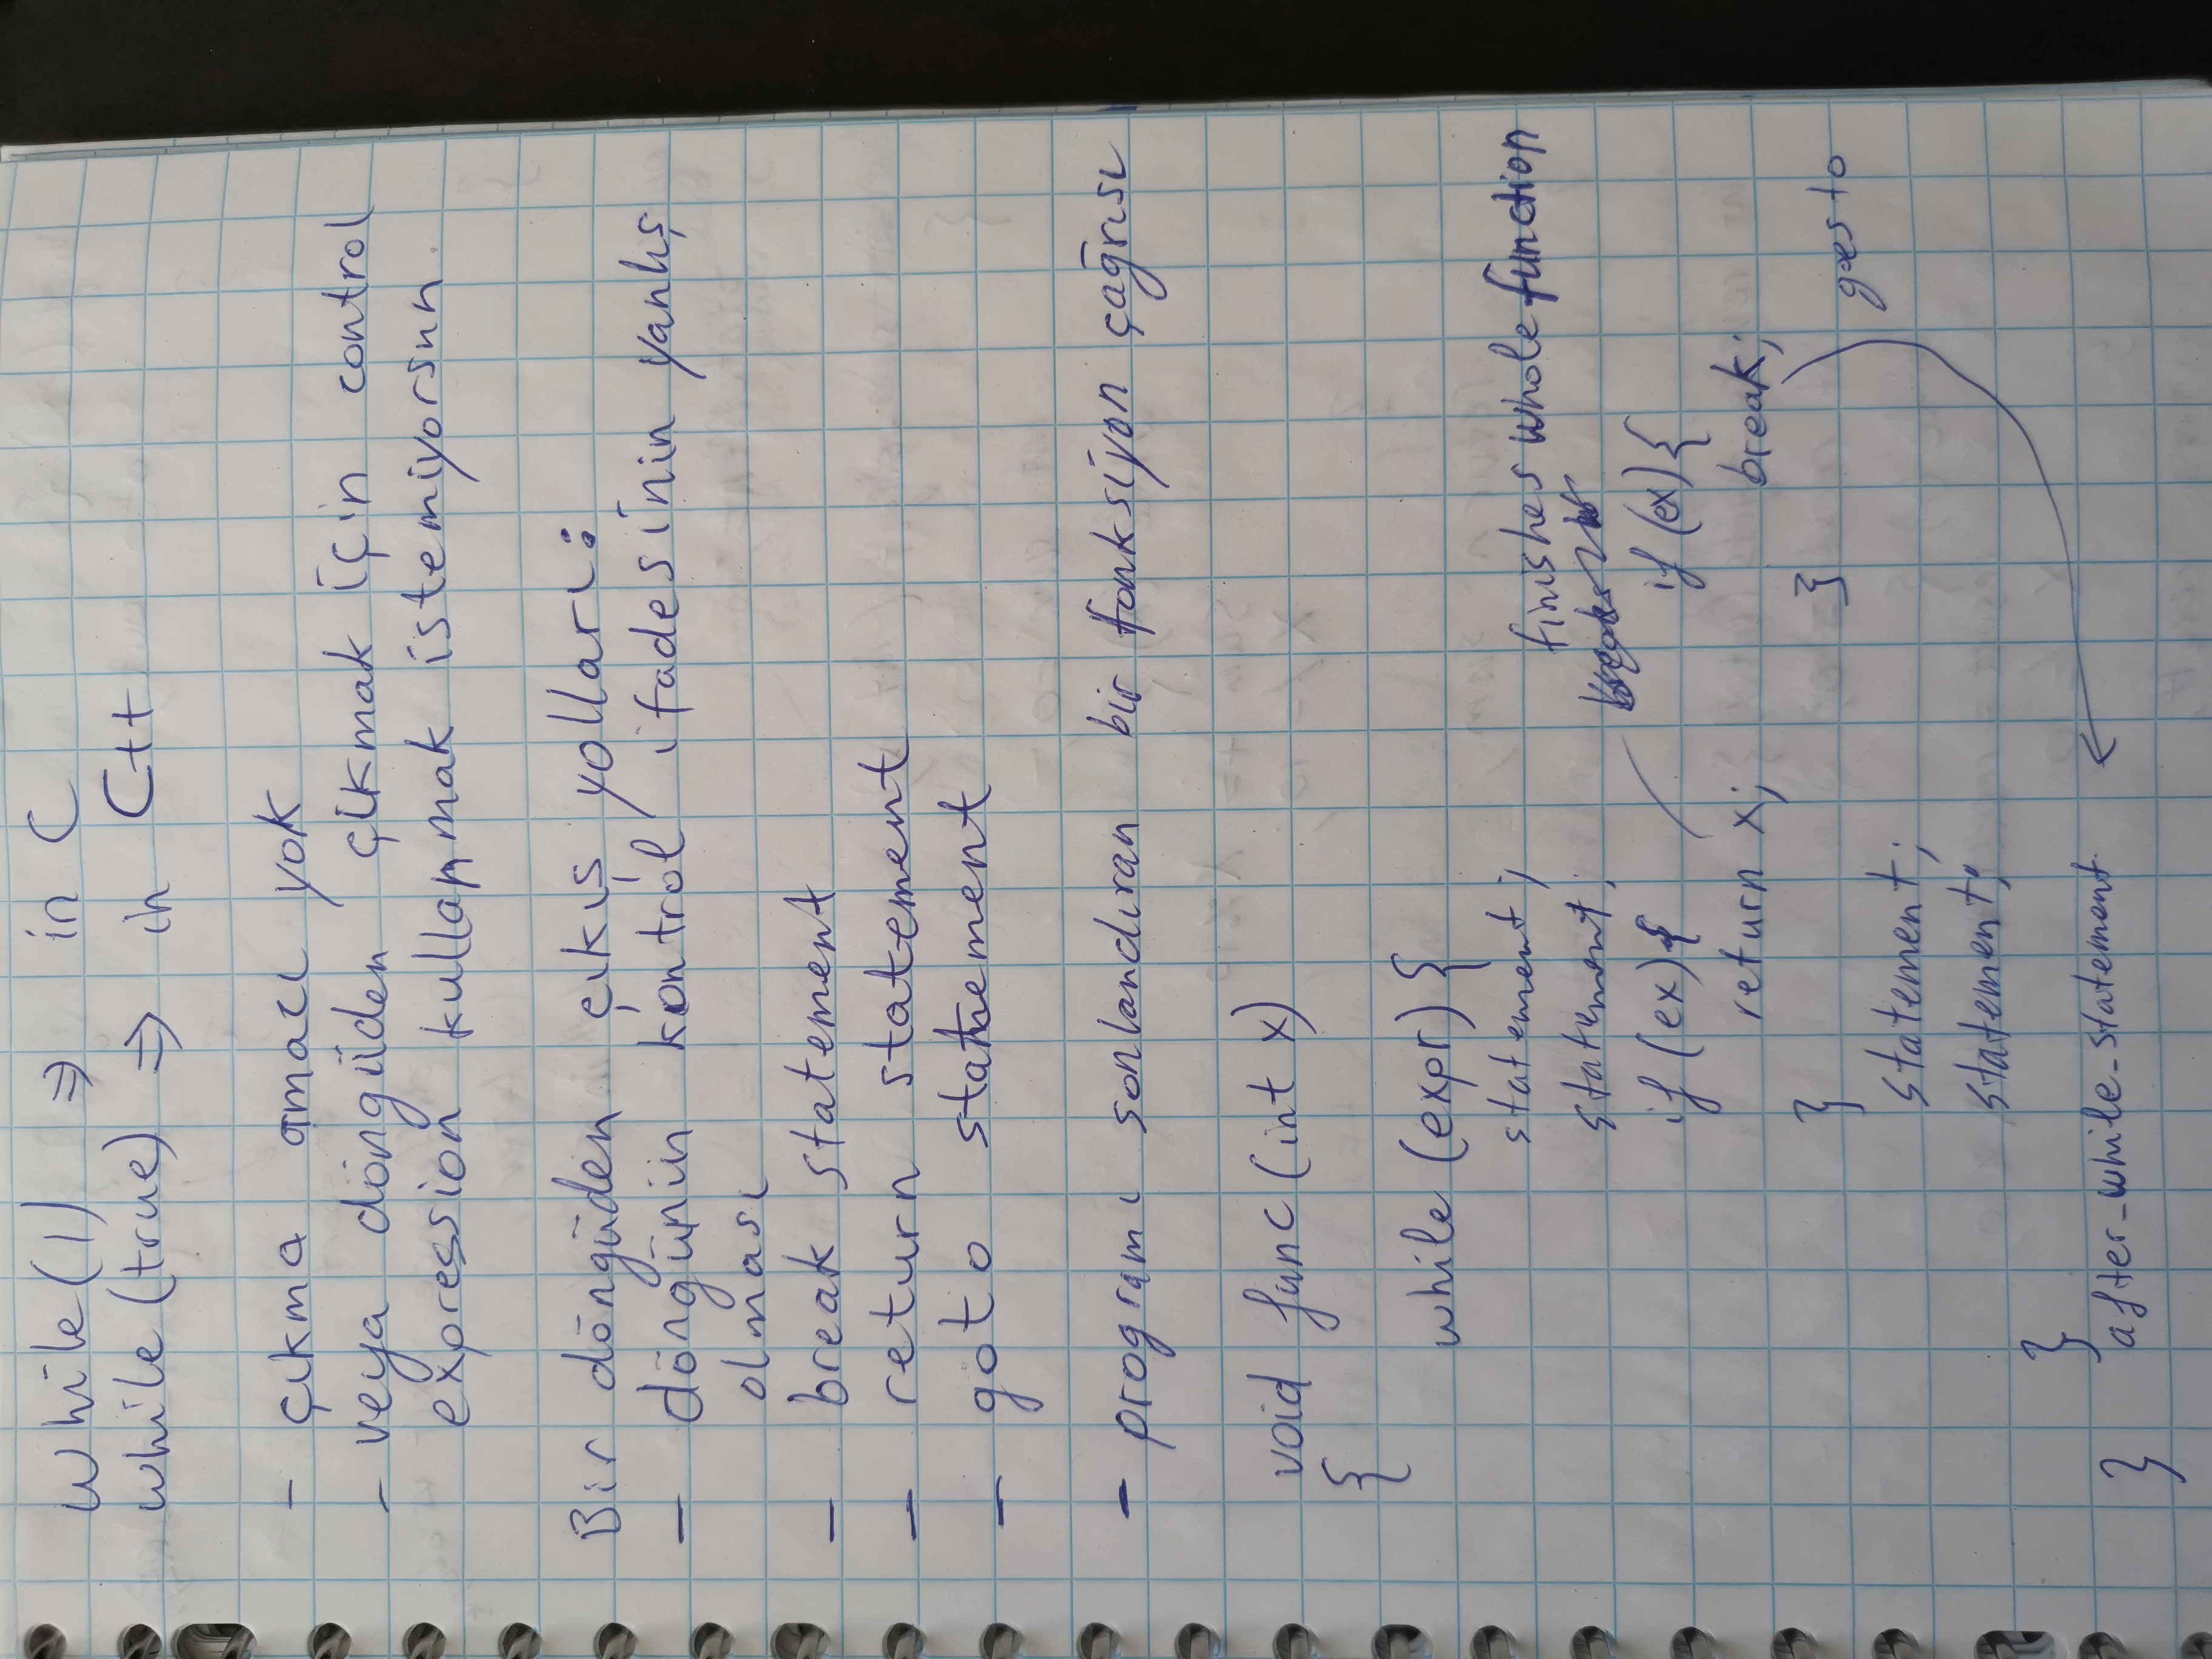 while(1) ⇒ in C
while(true) ⇒ in C++
- çıkma amacı yok
- veya döngüden çıkmak için control
expression kullanmak istemiyorsun
Bir döngüden çıkış yolları:
- döngünün kontrol ifadesinin yanlış
olması
- break statement
- return statement
- goto statement
- programı sonlandıran bir fonksiyon çağrısı
void func(int x)
{
while (expr) {
statement;
finishes whole function
statement;
if (ex) {
if (ex) {
return x;
break;
}
}
goes to
statement;
statement;
}
after_while_statement
}